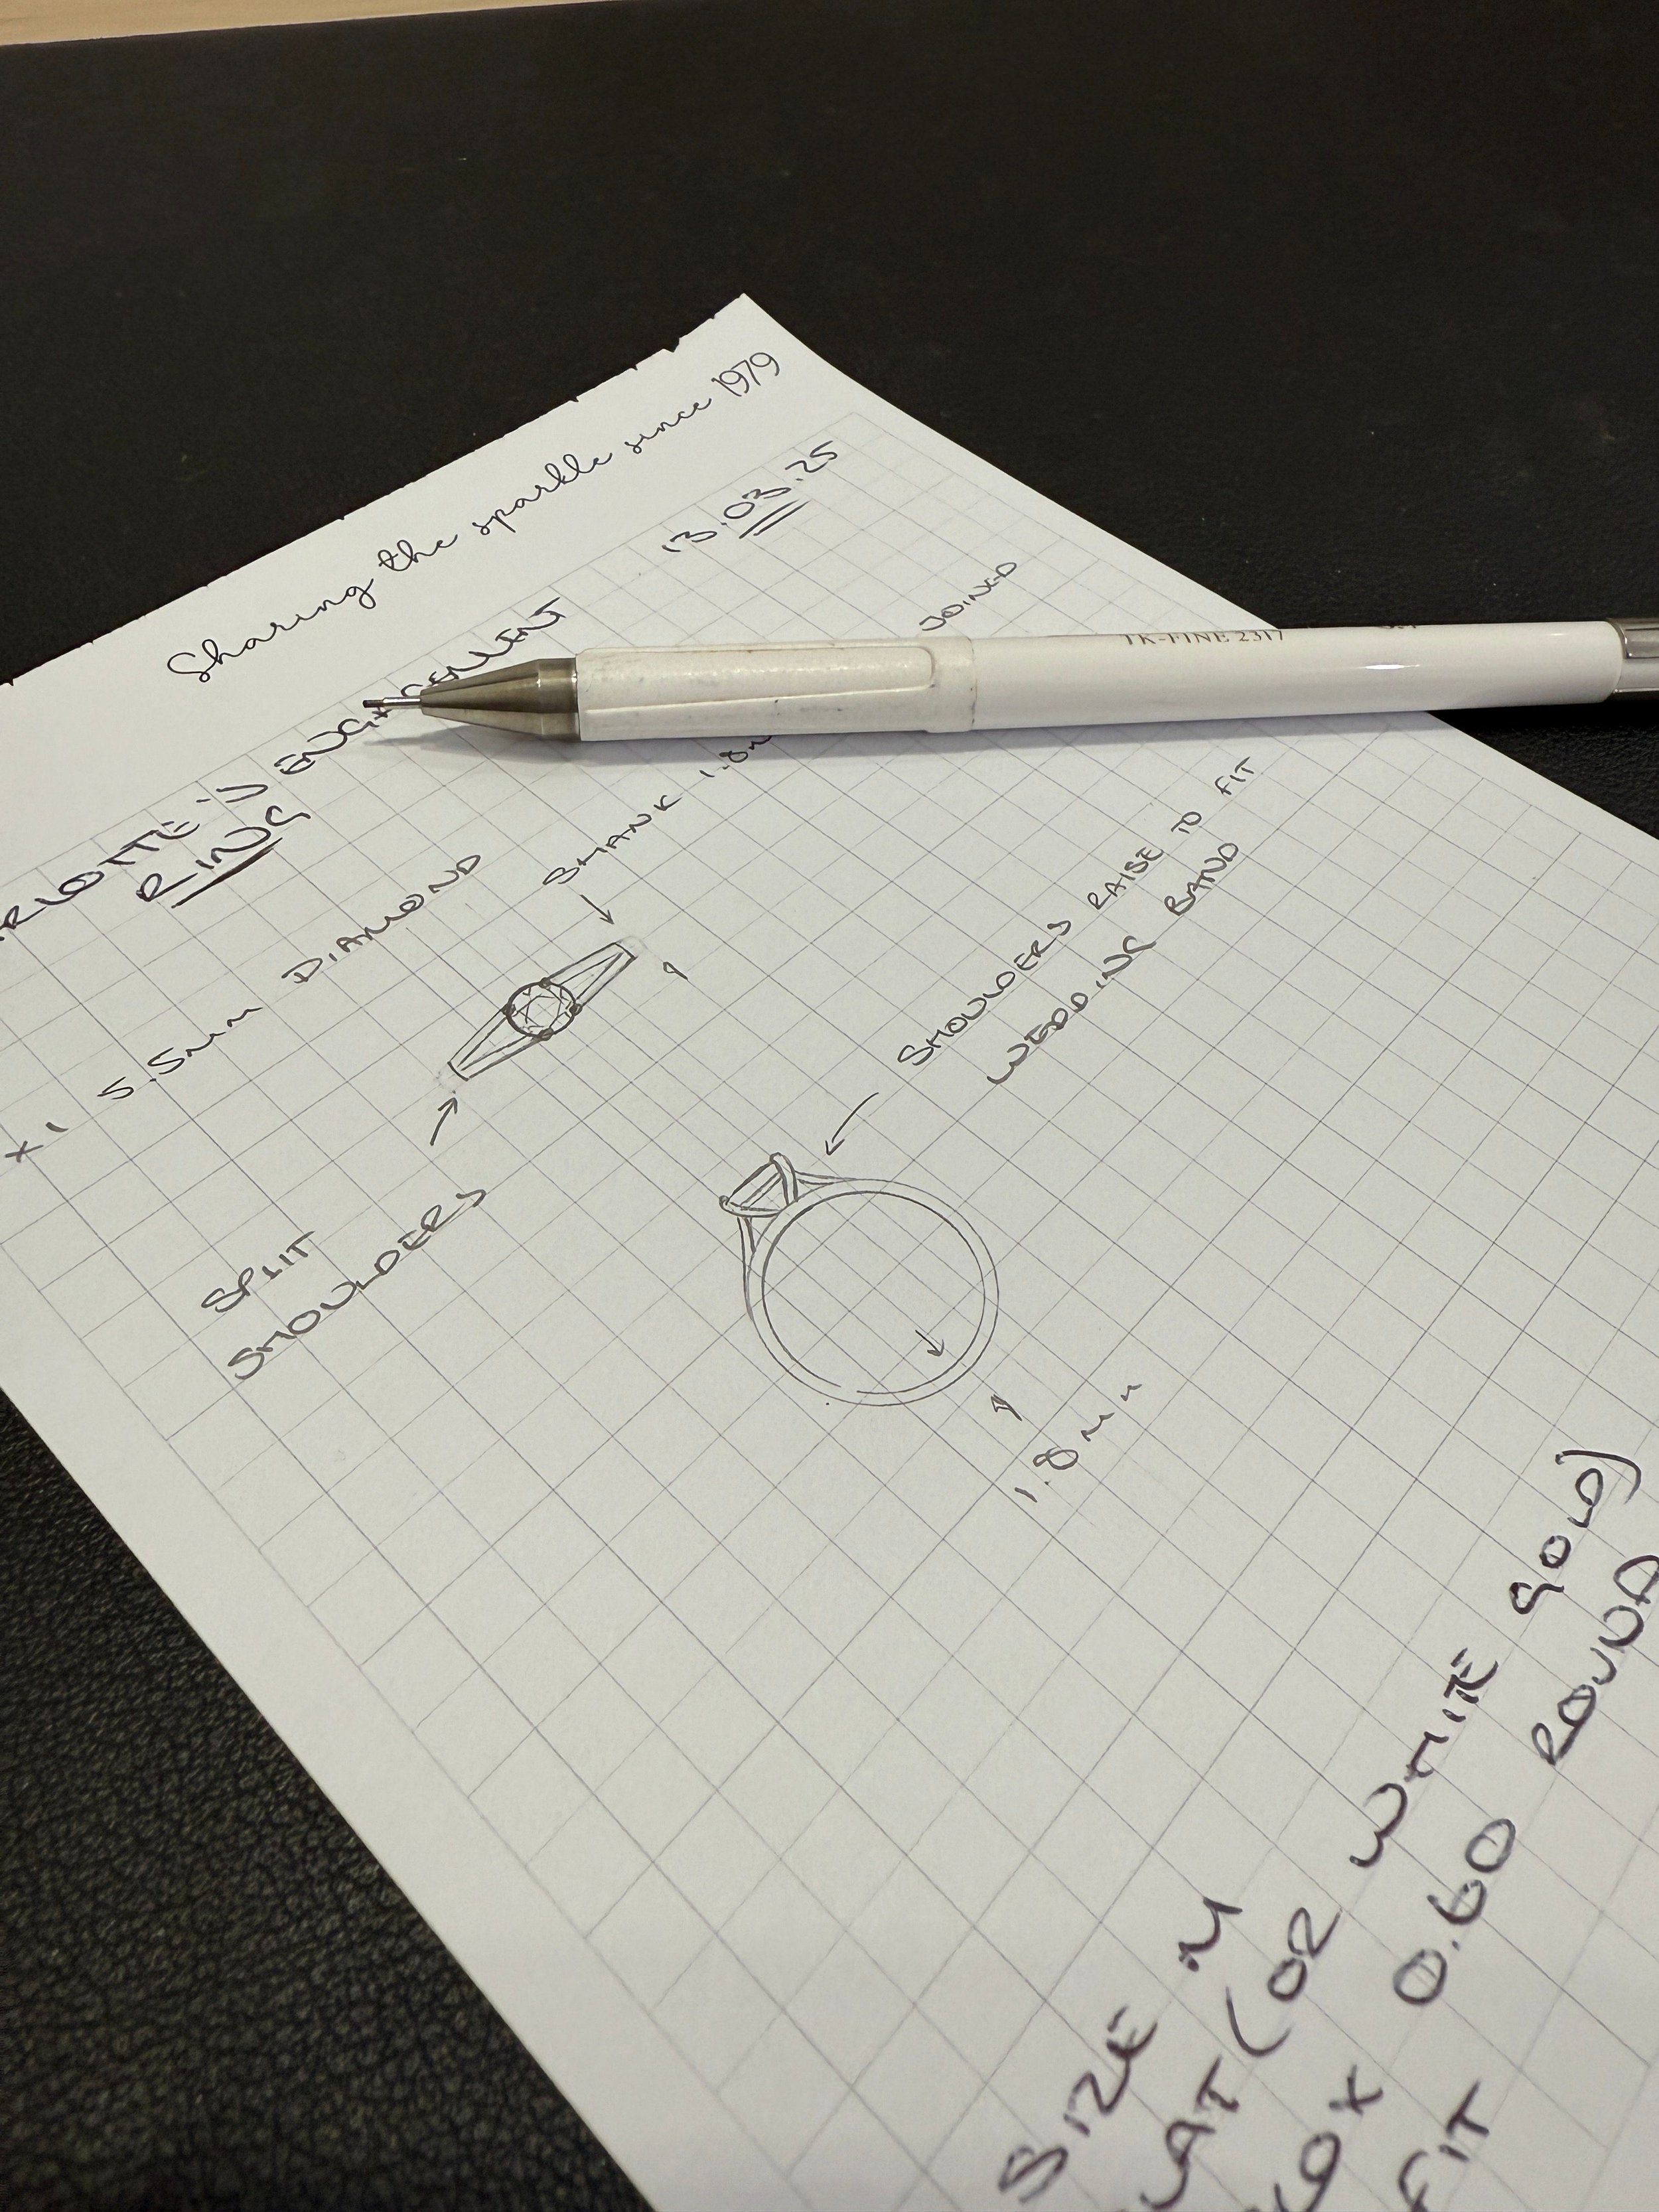 Sharing the sparkle since 1979
13.03.25
ENGAGEMENT
RING
x1 5.5mm DIAMOND
SHANK 1.8m
JOINED
SPLIT
SHOULDERS
SHOULDERS RAISE TO FIT
WEDDING BAND
1.8mm
SIZE M
(OR WHITE GOLD)
0.60 ROUND
FIT
TK-FINE 2317